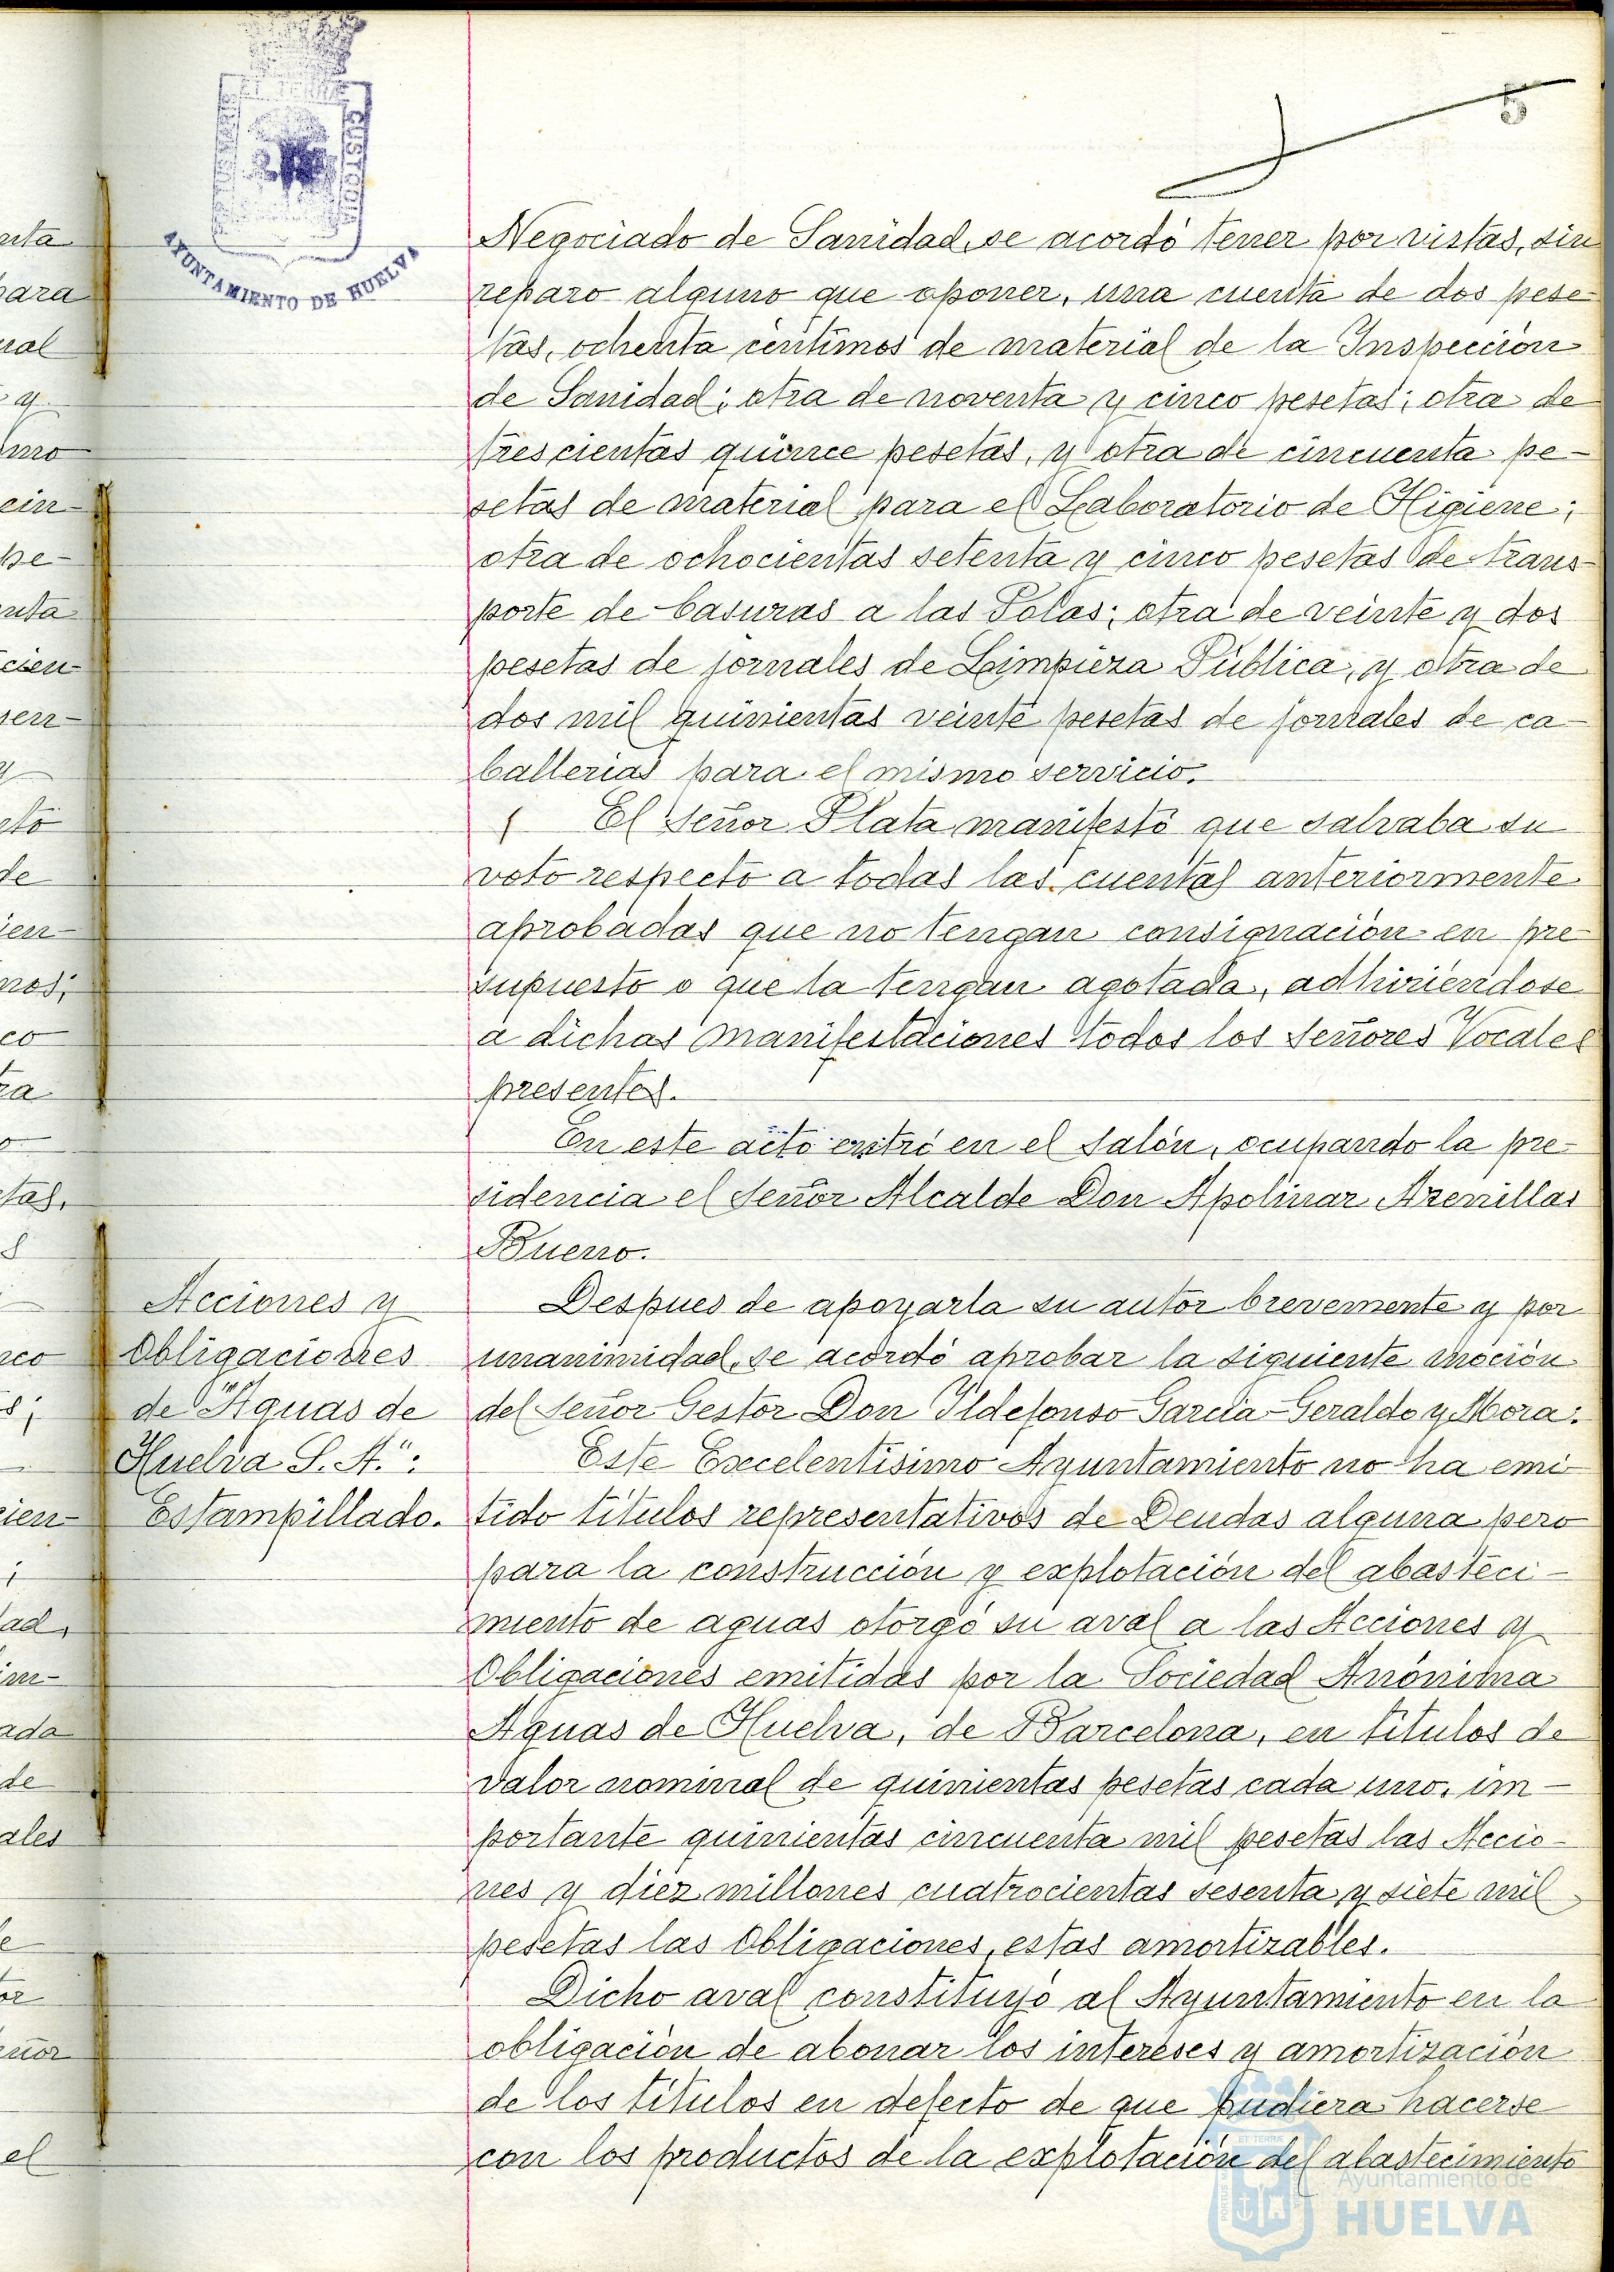 5
ET TERRÆ
CUSTODIA
AYUNTAMIENTO DE HUELVA
Negociado de Sanidad, se acordó tener por vistas, sin
reparo alguno que oponer, una cuenta de dos pese-
tas, ochenta céntimos de material de la Inspección
de Sanidad; otra de noventa y cinco pesetas; otra de
trescientas quince pesetas, y otra de cincuenta pe-
setas de material para el Laboratorio de Higiene;
otra de ochocientas setenta y cinco pesetas de trans-
porte de basuras a las Polas; otra de veinte y dos
pesetas de jornales de Limpieza Pública, y otra de
dos mil quinientas veinte pesetas de jornales de ca-
ballerias para el mismo servicio.
El Señor Plata manifestó que salvaba su
voto respecto a todas las cuentas anteriormente
aprobadas que no tengan consignación en pre-
supuesto o que la tengan agotada, adhiriéndose
a dichas manifestaciones todos los Señores Vocales
presentes.
En este acto entró en el Salón, ocupando la pre-
sidencia el Señor Alcalde Don Apolinar Arenillas
Bueno.
Acciones y
Obligaciones
de "Aguas de
Huelva S. A.":
Estampillado.
Despues de apoyarla su autor brevemente y por
unanimidad, se acordó aprobar la siguiente moción
del Señor Gestor Don Ildefonso García-Geraldo y Mora:
Este Excelentísimo Ayuntamiento no ha emi-
tido títulos representativos de Deudas alguna pero
para la construcción y explotación del abasteci-
miento de aguas otorgó su aval a las Acciones y
Obligaciones emitidas por la Sociedad Anónima
Aguas de Huelva, de Barcelona, en títulos de
valor nominal de quinientas pesetas cada uno, im-
portante quinientas cincuenta mil pesetas las Accio-
nes y diez millones cuatrocientas sesenta y siete mil
pesetas las Obligaciones, estas amortizables.
Dicho aval constituyó al Ayuntamiento en la
obligación de abonar los intereses y amortización
de los títulos en defecto de que pudiera hacerse
con los productos de la explotación del abastecimiento
Ayuntamiento de
HUELVA